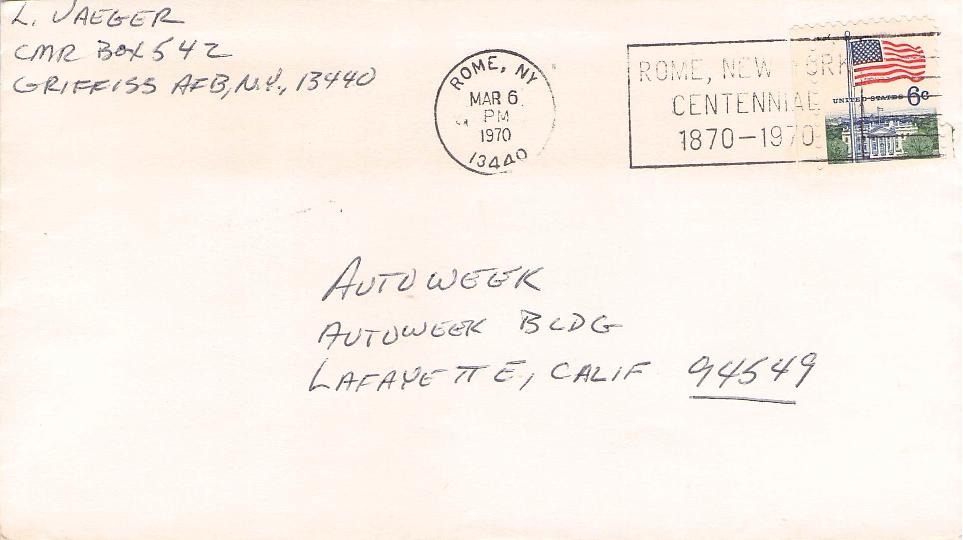 L. JAEGER
CMR BOX 542
GRIFFISS AFB, N.Y., 13440
ROME, NY
MAR 6
PM
1970
13440
ROME, NEW YORK
CENTENNIAL
1870-1970
UNITED STATES 6c
AUTOWEEK
AUTOWEEK BLDG
LAFAYETTE, CALIF 94549